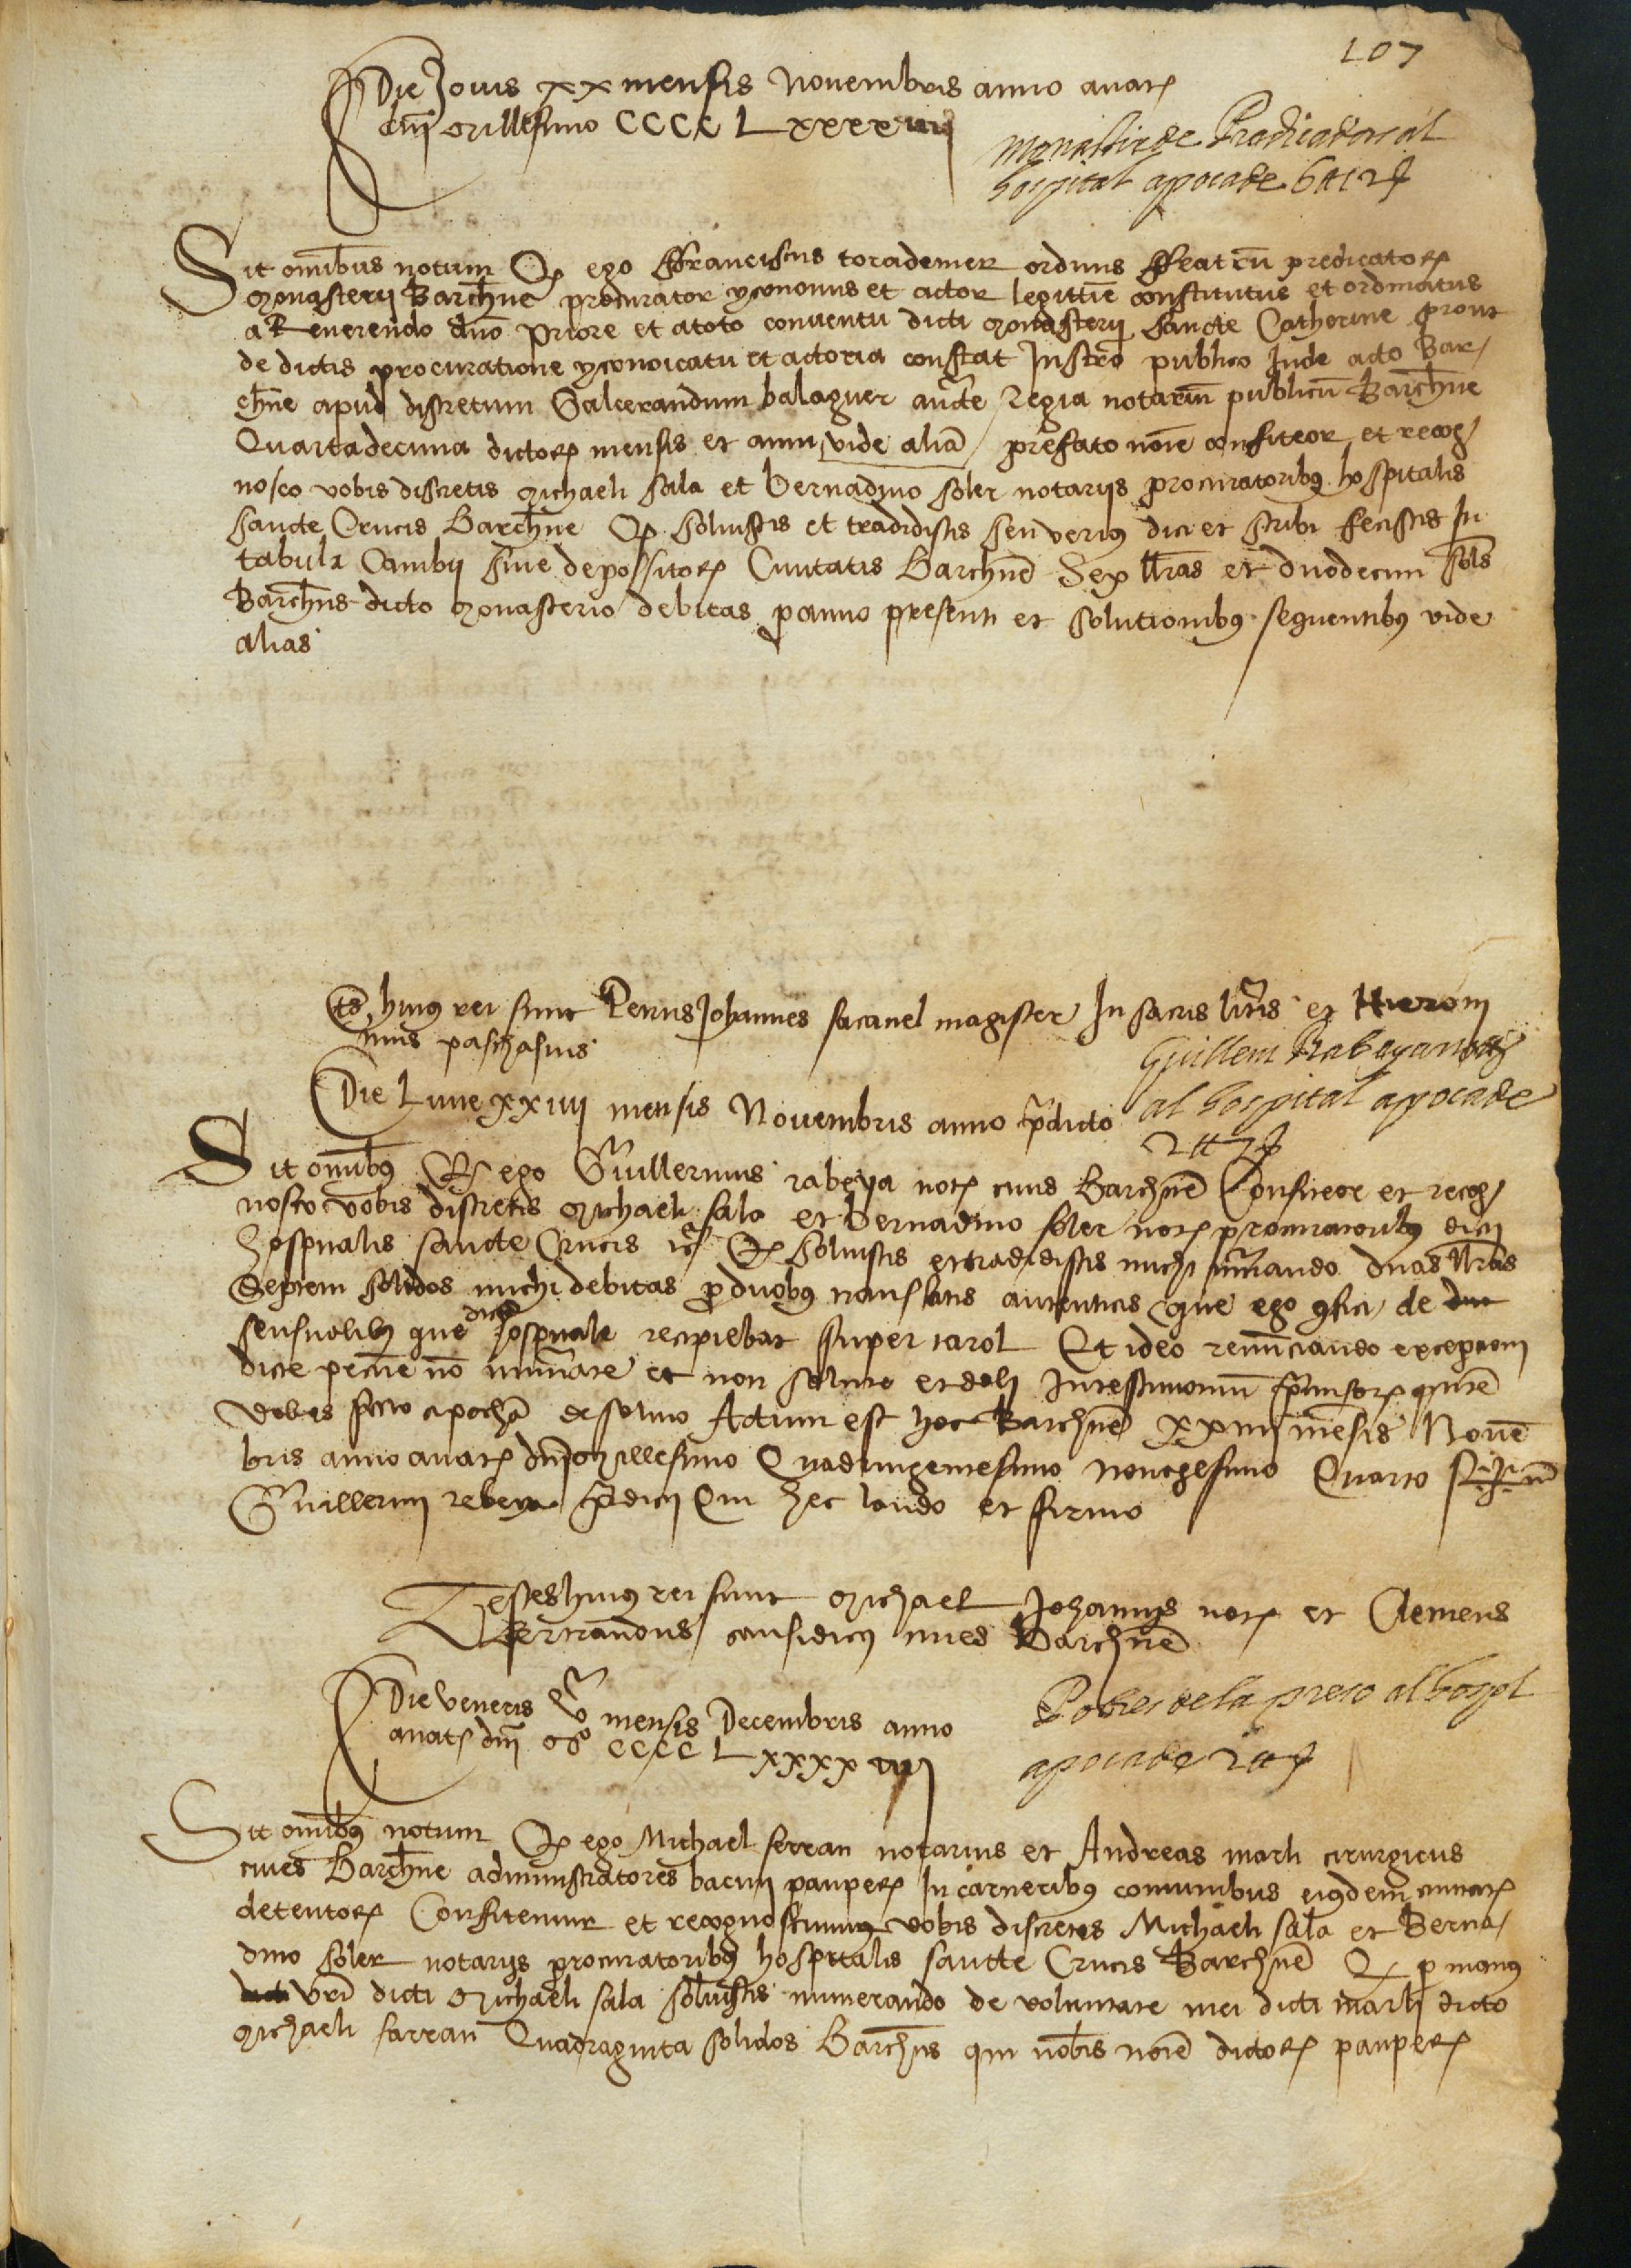 107
Die Jovis xx mensis Novembris anno a natꝝ
dnī Millesimo CCCC L xxxx iiij
monastir de Predicadors al
hospital apoca de 6 ₶ 12 ẜ
Sit omībus notum Qꝫ ego ffranciscus torademer ordinis ffratrū predicatoꝝ
Monasterij Barchn̄e procurator yconomus et actor legittīe constitutus et ordinatus
a Reverendo dnō Priore et a toto conventu dicti Monasterij Sancte Catherine prout
de dictis procuratione yconomicatu et actoria constat Instrō publico Inde acto Bar/
chn̄e apud discretum Galcerandum balaguer auctē Regia notariū publicū Barchn̄e
Quartadecima dictoꝝ mensis et anni, vide aliā / prefato noīe confiteor et recog/
nosco vobis discretis Michaeli sala et bernadino soler notarijs procuratoribꝰ hospitalis
Sancte Crucis Barchn̄e Qꝫ solvistis et tradidistis seu veriꝰ dici et scribi fecistis In
tabula Cambij sive depossitoꝝ Civitatis Barchn̄e Sex llr̄as et duodecim sol̄s
Barchn̄s dicto Monasterio debitas ꝑ anno presenti et solutionibꝰ sequentibꝰ vide
alias
Tes̄ huiꝰ rei sunt Petrus Johannes sacanel magister In sacris litr̄is et Hieroni
mus paschasius
Guillem Rabeya notꝝ
al hospital apoca de
2 ₶ 7 ẜ
Die Lune xxiiij mensis Novembris anno p̄dicto
Sit omībꝰ Qꝫ ego Guillermus rabeya notꝝ civis Barchn̄e Confiteor et recog/
nosco vobis discretis Michaeli sala et bernadino soler notꝝ procuratoribꝰ dicti
hospitalis sancte Crucis Qꝫ solvistis et tradidistis michi nūando duas llr̄as
Septem solidos michi debitas ꝓ duobꝰ translatis autenticis que ego ꝯfici de
sensualibꝰ que dictū hospitale recipiebat super Et ideo renūciando exceptioni
dicte pecūie nō nūate et non solute et doli In testimoniū p̄missoꝝ
vobis facio apochā de soluto Actum est hoc Barchn̄e xxiiij mēsis Novē
bris anno a natꝝ dnī Millesimo Quadringentesimo nonagesimo Quarto Sig+nū
Guillermi rebeya p̄dicti Qui hec laudo et firmo
Testes huiꝰ rei sunt Michael Johannis notꝝ et Clemens
causidicꝰ cives Barchn̄e
Die veneris v mensis Decembris anno
a natꝝ dnī Mº CCCC L xxxx iiij
Pobres de la preso al hospl
apoca de 2 ₶ ẜ
Sit omībꝰ notum Qꝫ ego Michael serran notarius et Andreas marti cirurgicus
cives Barchn̄e administratores bacini pauperꝝ In carceribꝰ comunibus eiꝰdem civitatꝝ
detentoꝝ Confitemur et recognoscimus vobis discretis Michaeli sala et Berna/
dino soler notarijs procuratoribꝰ hospitalis sancte Crucis Barchn̄e Qꝫ ꝑ manꝰ
vrī dicti Michaeli sala solvistis numerando de voluntate mei dicti marti dicto
Michaeli sarran Quadraginta solidos Barchn̄s qui nobis noīe dictoꝝ pauperꝝ